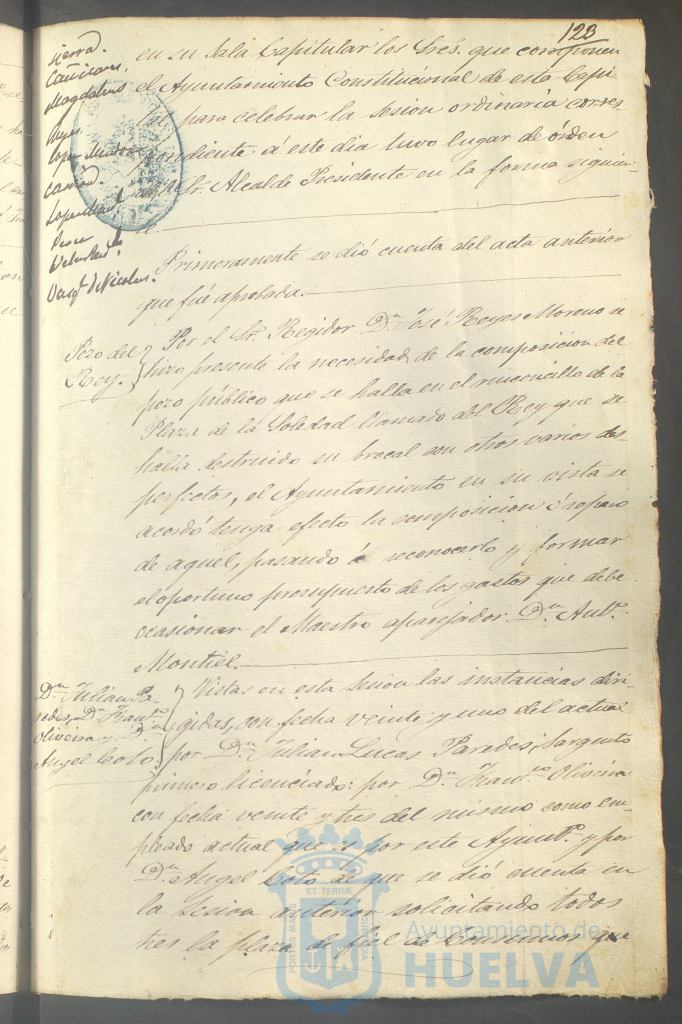 123
Sierra.
Magdaleno
Reyes
Lopez
Perez
en su Sala Capitular los Sres. que componen
el Ayuntamiento Constitucional de esta Capi
tal para celebrar la Sesion ordinaria corres
pondiente a este dia tuvo lugar de órden
del Sr. Alcalde Presidente en la forma siguien
te.
Primeramente se dió cuenta del acta anterior
que fué aprobada.
Pozo del
Rey.
Por el Sr. Regidor Dn. José Reyes Moreno se
hizo presente la necesidad de la composicion del
pozo público que se halla en el rinconcillo de la
Plaza de la Soledad llamado del Rey que se
halla destruido su brocal con otros varios des
perfectos, el Ayuntamiento en su vista se
acordó tenga efecto la composicion ó reparo
de aquel, pasando á reconocerlo y formar
el oportuno presupuesto de los gastos que debe
ocasionar el Maestro aparejador Dn. Antº.
Montiel.
Dn. Julian Pa-
redes, Dn. Franco.
Oliveira y Dn.
Angel Coto.
Vistas en esta Sesion las instancias diri
gidas, con fecha veinte y uno del actual
por Dn. Julian Lucas Paredes, Sargento
primero licenciado: por Dn. Franco. Oliveira
con fecha veinte y tres del mismo como em
pleado actual que es por este Ayuntº. y por
Dn. Angel Coto de que se dió cuenta en
la Sesion anterior solicitando todos
tres la plaza de fiel de Consumos que
ET TERRAE
PORTUS MARIS
CUSTODIA
Ayuntamiento de
HUELVA